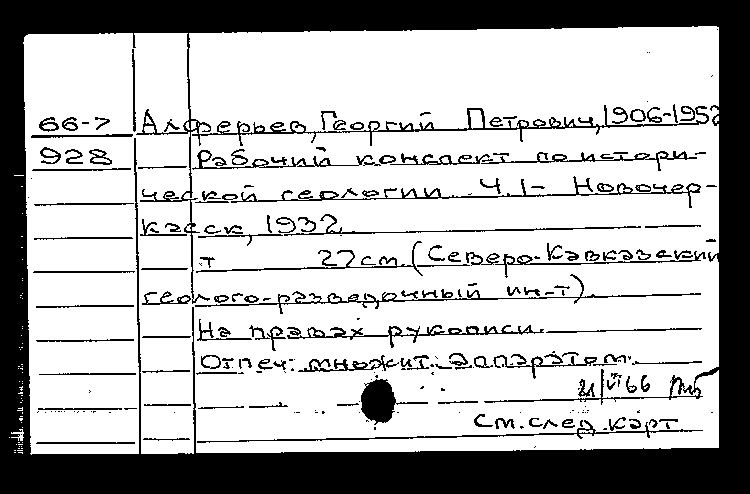 66-7 Алферьев, Георгий Петрович, 1906-1952
928 Рабочий конспект по истори-
ческой геологии Ч.1- Новочер-
касск, 1932.
т 27см. (Северо-Кавказский
геолого-разведочный ин-т).
На правах рукописи.
Отпеч. множит. аппаратом.
21/VI 66
См. след. карт